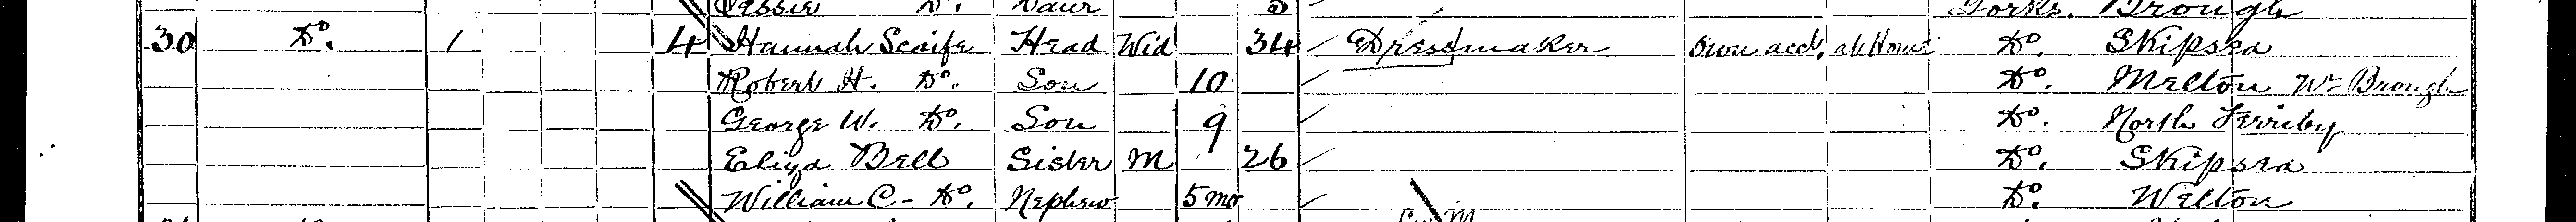 Do. Daur 5 Yorks. Brough
30 Do. 1 4 Hannah Scaife Head Wid 34 Dressmaker Own acct, at Home Do. Skipsea
Robert H. Do. Son 10 Do. Melton Nr Brough
George W. Do. Son 9 Do. North Ferriby
Eliza Bell Sister M 26 Do. Skipsea
William C. Do. Nephew 5 mo Do. Welton